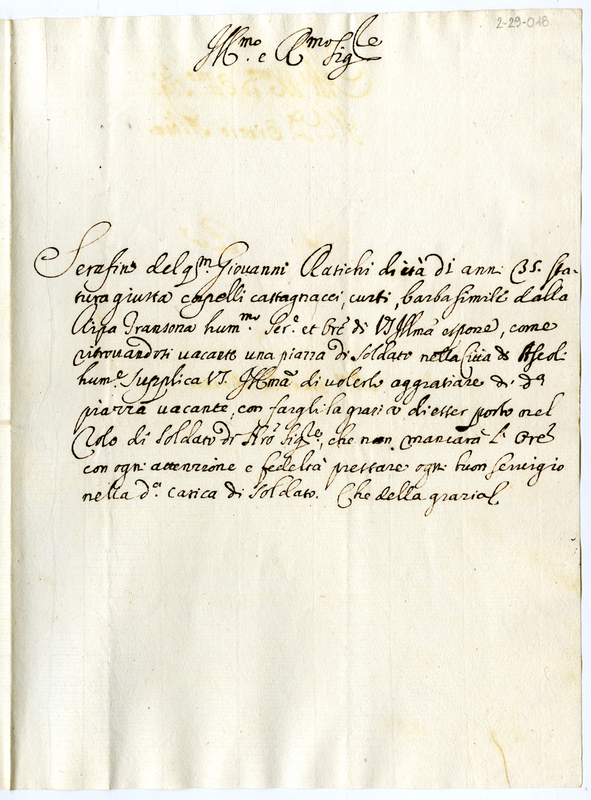 2-29-018
Ill.mo e R.mo Sig.le
Serafino del q.m Giovanni Ratichi di età di anni 35. sta-
tura giusta capelli castagnacci, curti, barba simile dalla
Ripa Transona hum.mo Ser.e et Ore di VS Illma espone, come
ritrovandosi vacante una piazza di soldato nella Città di Ascoli
hum.e supplica VS. Illma di volerlo aggratiare di d.a
piazza vacante, con fargli la grazia di esser posto nel
Rolo di soldato di Nro Sig.re, che non mancarà l'Ore
con ogni attenzione e fedeltà prestare ogni buon servigio
nella d.a carica di soldato. Che della grazia